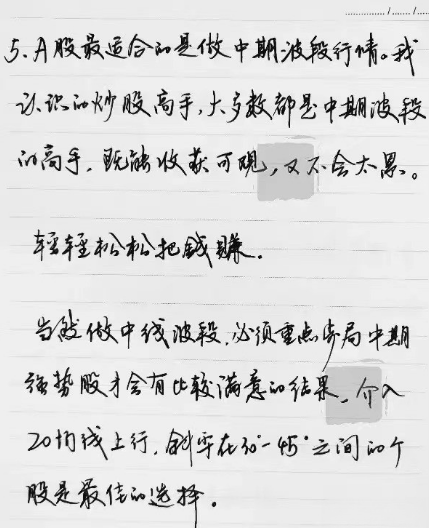 5.A股最适合的是做中期波段行情。我
认识的炒股高手,大多数都是中期波段
的高手,既能收获可观,又不会太累。
轻轻松松把钱赚.
当然做中线波段,必须重点布局中期
强势股才会有比较满意的结果,介入
20均线上行,斜率在30°-45°之间的个
股是最佳的选择。